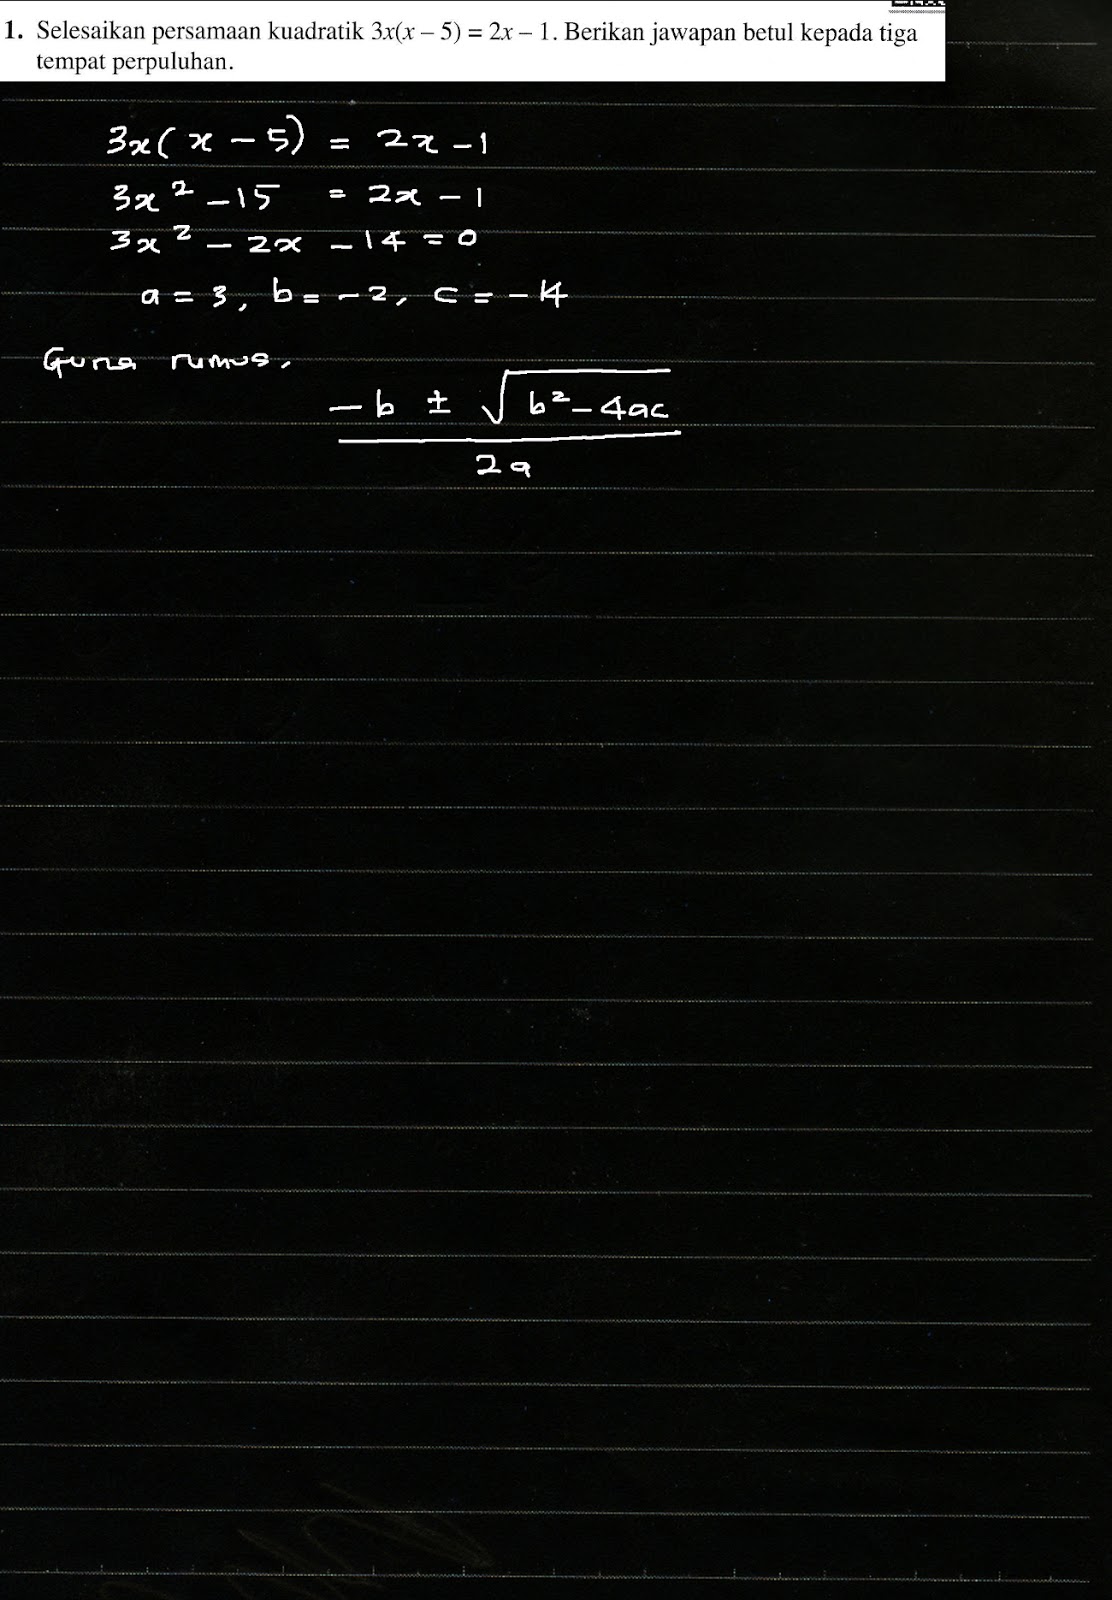 1. Selesaikan persamaan kuadratik 3x(x – 5) = 2x – 1. Berikan jawapan betul kepada tiga
tempat perpuluhan.
3x(x – 5) = 2x – 1
3x² – 15 = 2x – 1
3x² – 2x – 14 = 0
a = 3, b = –2, c = –14
Guna rumus,
–b ± √b² – 4ac
2a